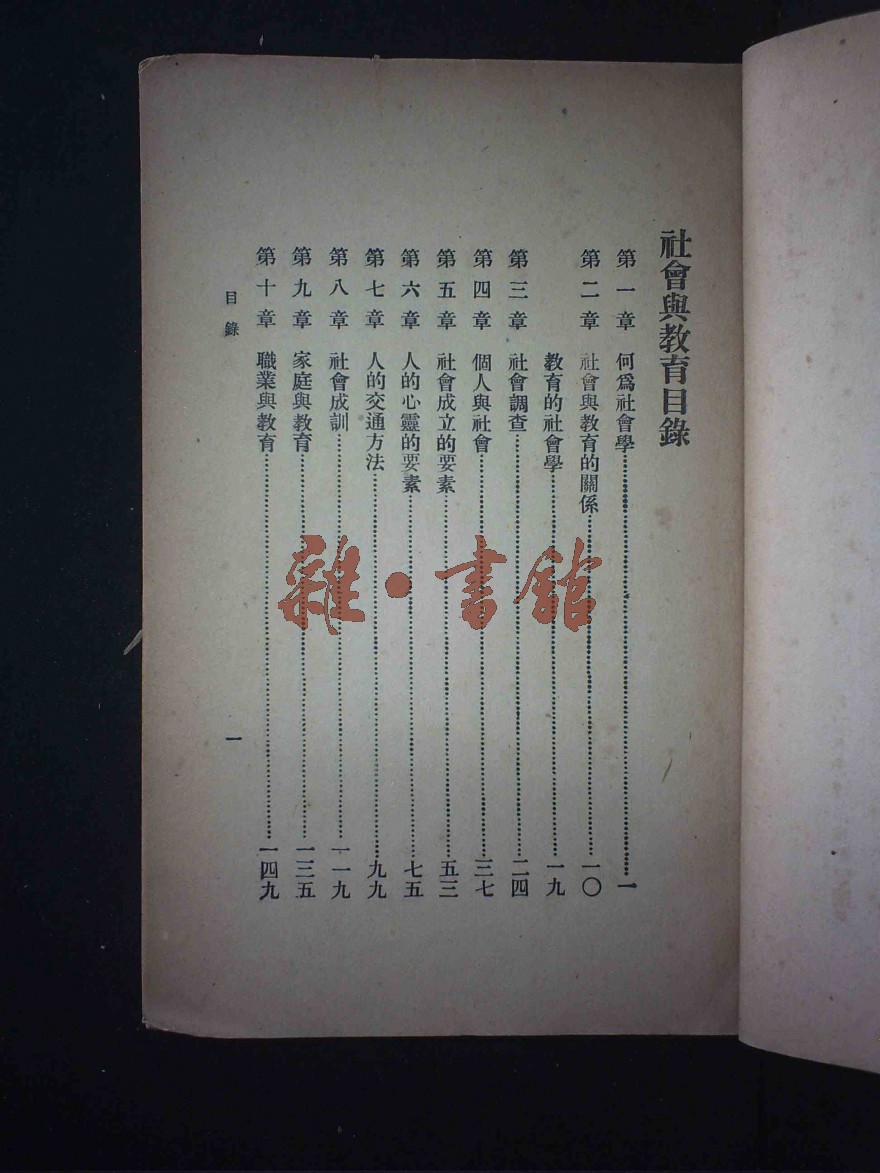 社會與教育目錄
第一章 何爲社會學……一
第二章 社會與教育的關係……一〇
教育的社會學……一九
第三章 社會調查……二四
第四章 個人與社會……三七
第五章 社會成立的要素……五三
第六章 人的心靈的要素……七五
第七章 人的交通方法……九九
第八章 社會成訓……一一九
第九章 家庭與教育……一三五
第十章 職業與教育……一四九
目錄 一
雜·書館